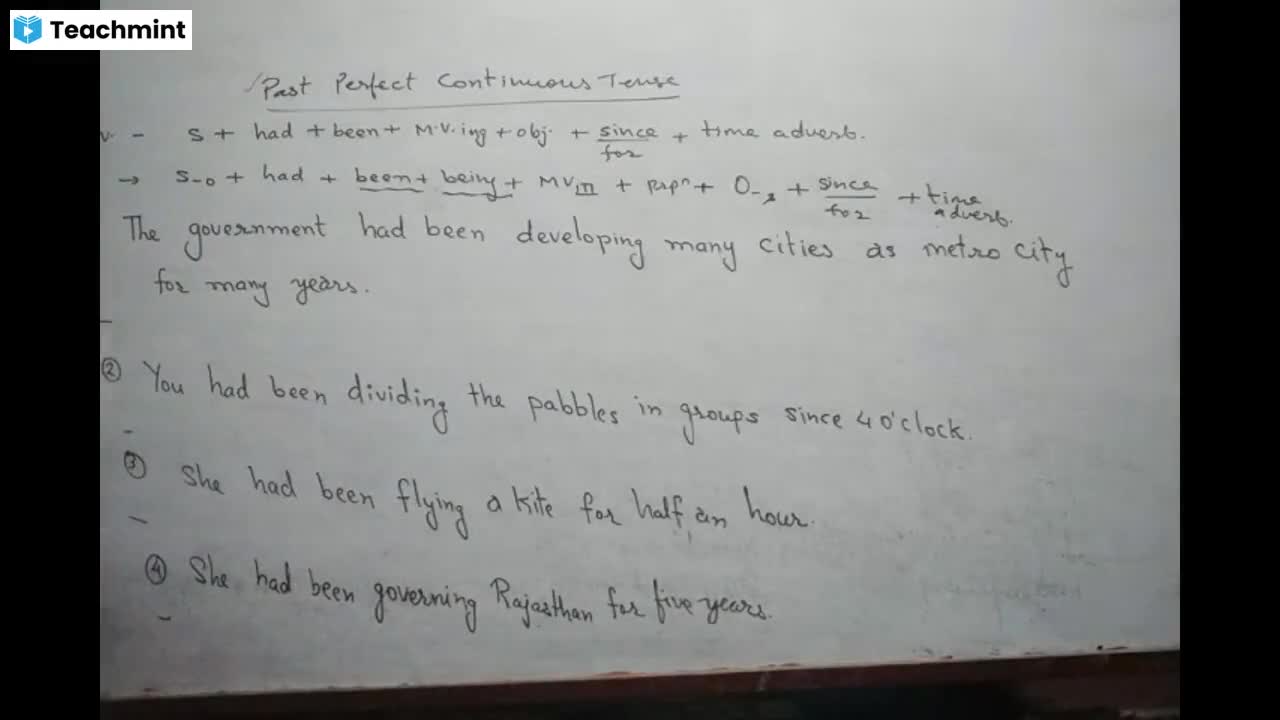 Teachmint
Past Perfect Continuous Tense
v. - S + had + been + M.V. ing + obj. + since/for + time adverb.
→ S-o + had + been + being + MVIII + prpⁿ + O-s + since/for + time adverb.
The government had been developing many cities as metro city
for many years.
② You had been dividing the pabbles in groups since 4 o'clock.
③ She had been flying a kite for half an hour.
④ She had been governing Rajasthan for five years.